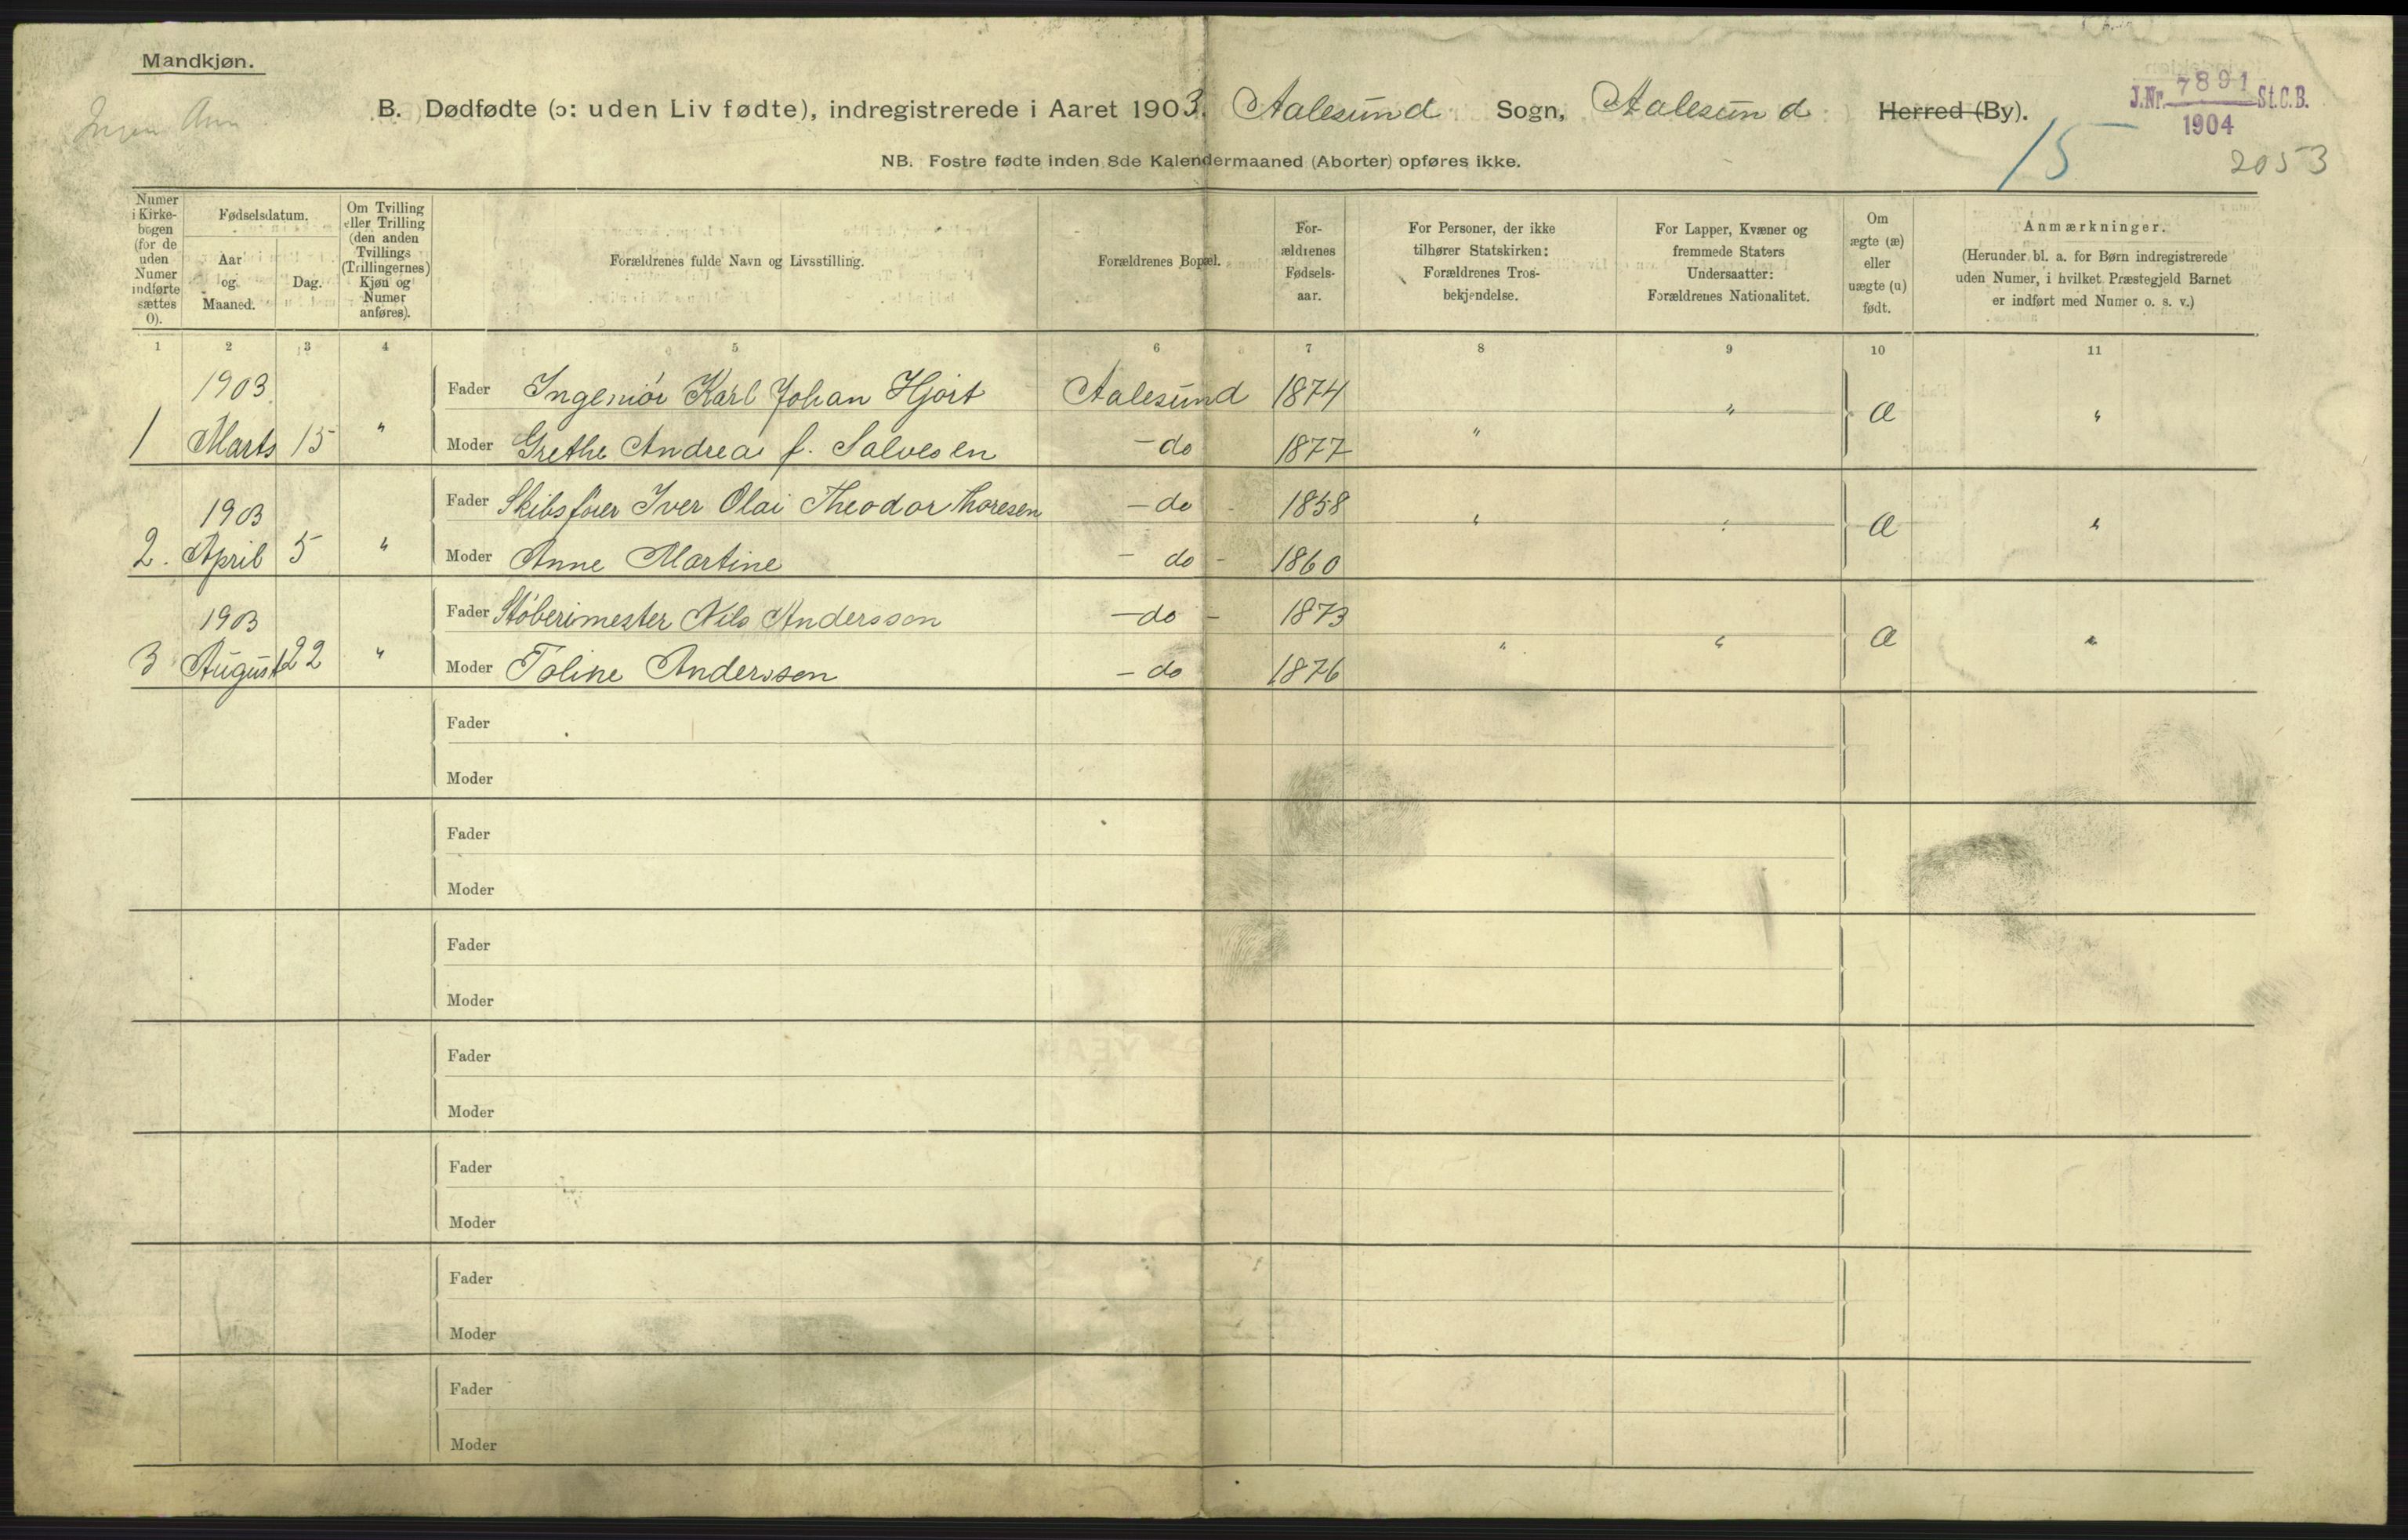 Mandkjøn.
J.Nr. 7891 St.C.B.
1904
B. Dødfødte (ɔ: uden Liv fødte), indregistrerede i Aaret 1903. Aalesund Sogn, Aalesund Herred (By).
15
2053
NB. Fostre fødte inden 8de Kalendermaaned (Aborter) opføres ikke.
Numer
i Kirke-
bogen
(for de
uden
Numer
indførte
sættes
0).
Fødselsdatum.
Aar
og
Maaned.
Dag.
Om Tvilling
eller Trilling
(den anden
Tvillings
(Trillingernes)
Kjøn og
Numer
anføres).
Forældrenes fulde Navn og Livsstilling.
Forældrenes Bopæl.
For-
ældrenes
Fødsels-
aar.
For Personer, der ikke
tilhører Statskirken:
Forældrenes Tros-
bekjendelse.
For Lapper, Kvæner og
fremmede Staters
Undersaatter:
Forældrenes Nationalitet.
Om
ægte (æ)
eller
uægte (u)
født.
Anmærkninger.
(Herunder bl. a. for Børn indregistrerede
uden Numer, i hvilket Præstegjeld Barnet
er indført med Numer o. s. v.)
1 2 3 4 5 6 7 8 9 10 11
1903 Fader Ingeniør Karl Johan Hjort Aalesund 1874 " æ "
1 Marts 15 " Moder Grethe Andrea f. Salvesen - do 1877 "
1903 Fader Skibsfører Iver Olai Theodor Thoresen - do - 1858 " " æ "
2. April 5 " Moder Anne Martine - do - 1860
1903 Fader Støberimester Nils Andersson - do - 1873 " " æ "
3 August 22 " Moder Toline Anderssen - do 1876
Fader
Moder
Fader
Moder
Fader
Moder
Fader
Moder
Fader
Moder
Fader
Moder
Fader
Moder